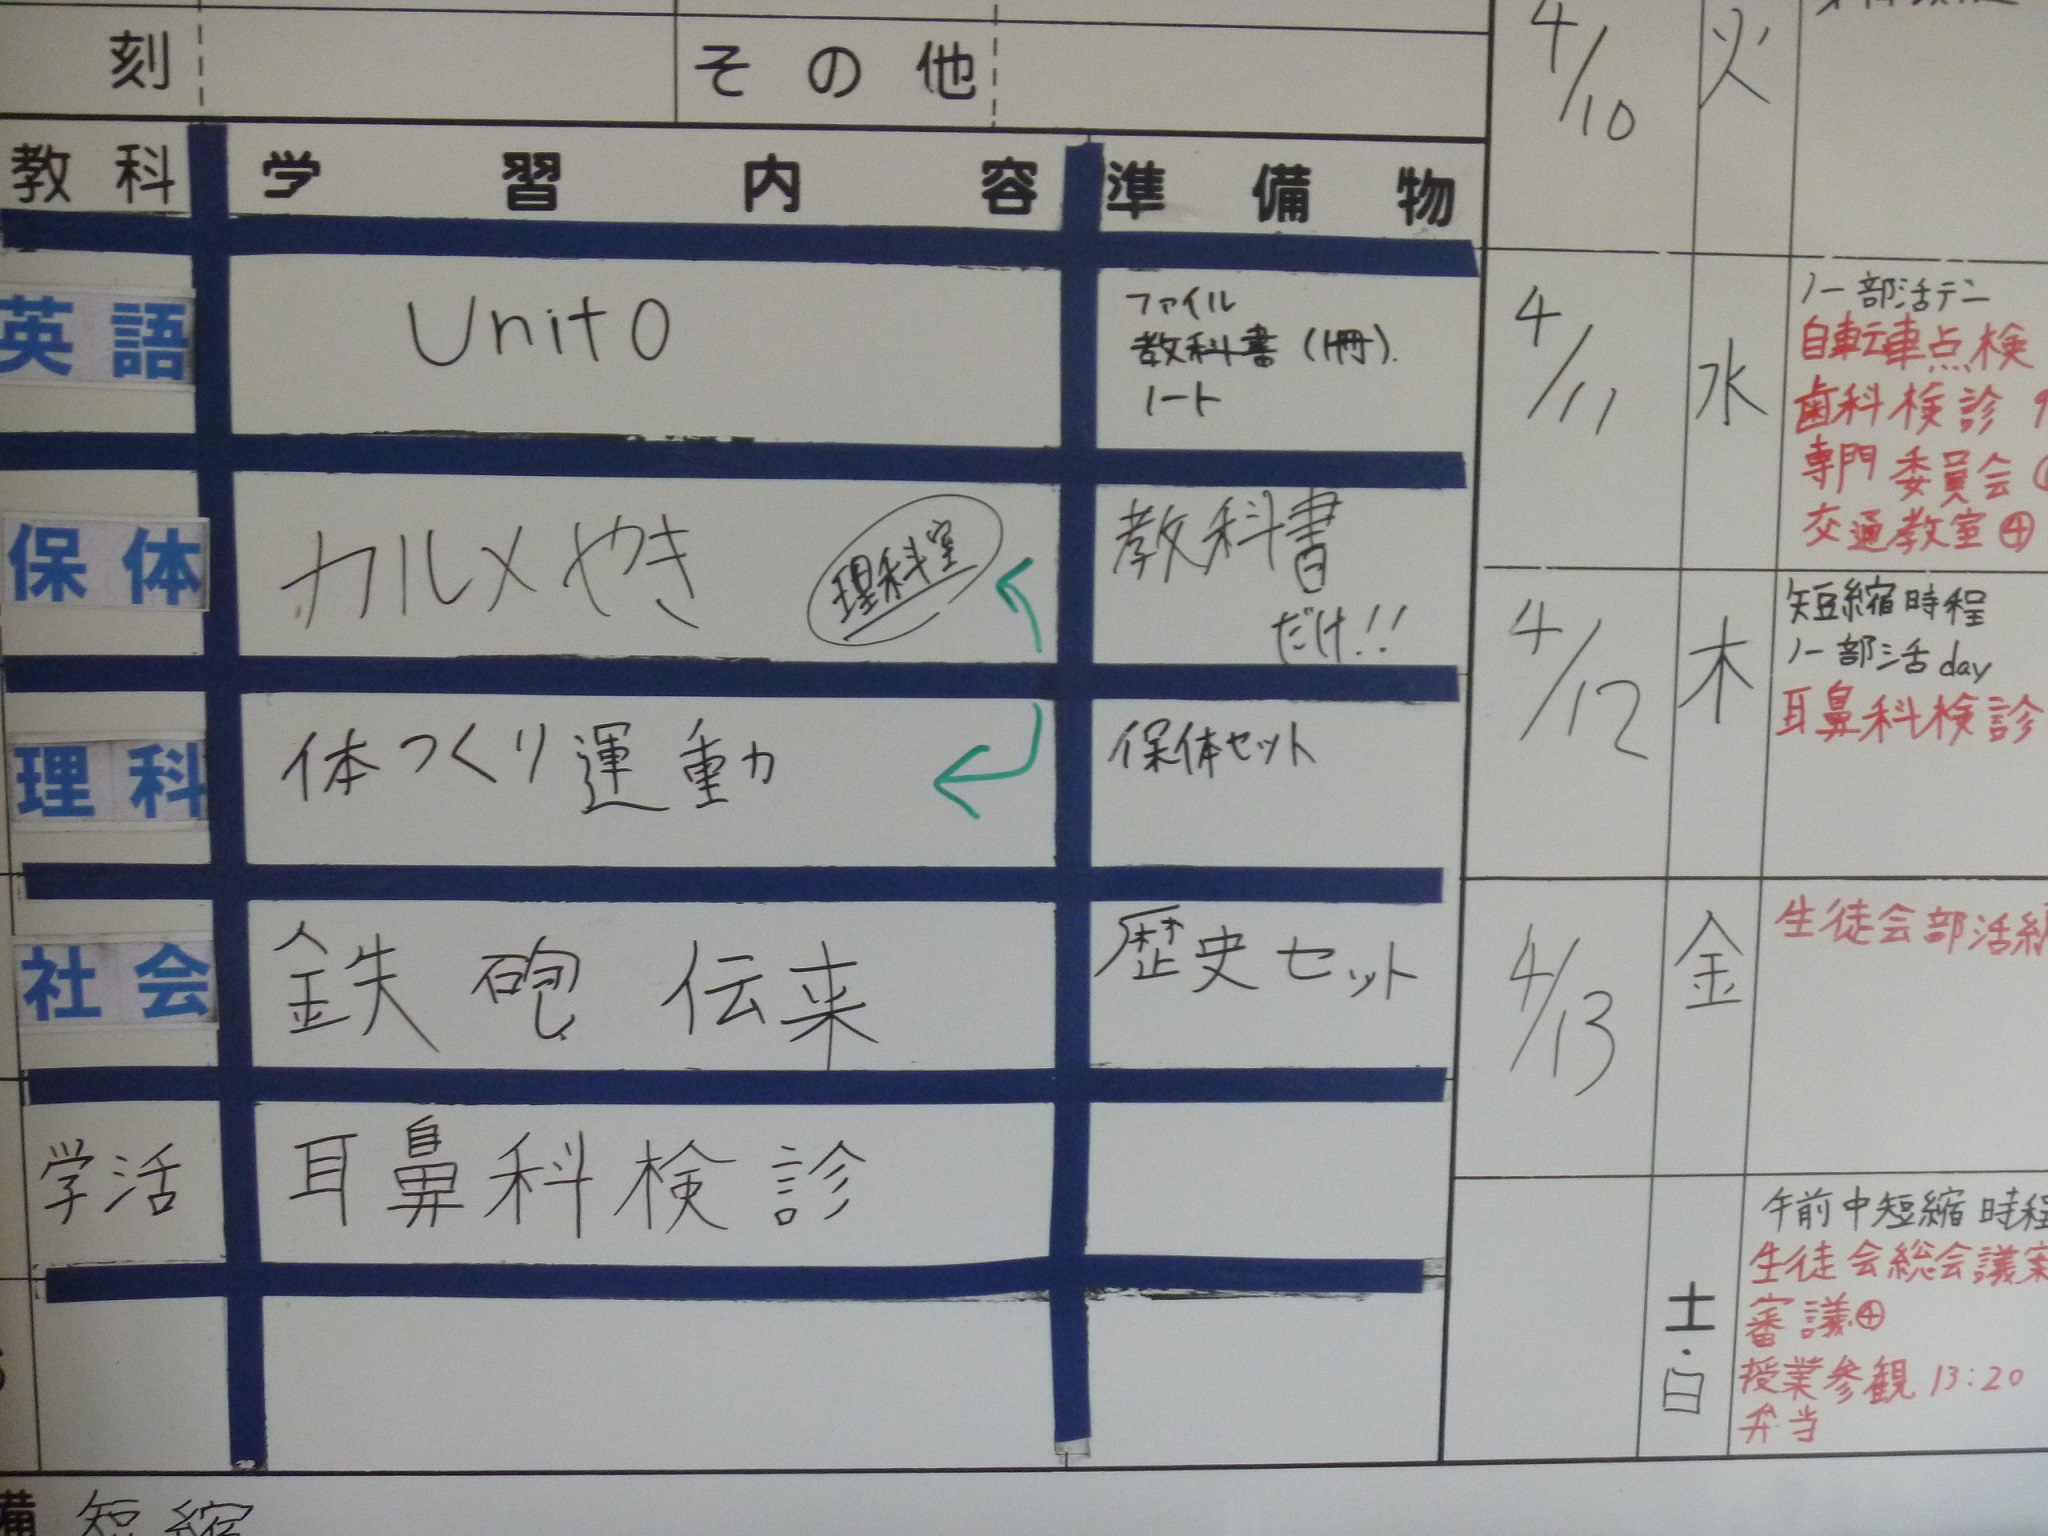 刻 その他
教科 学習内容 準備物
英語 Unit0 ファイル
教科書(1冊).
ノート
保体 カルメやき 理科室 教科書
だけ!!
理科 体つくり運動 保体セット
社会 鉄砲伝来 歴史セット
学活 耳鼻科検診
備 短縮
4/10 火
4/11 水 ノー部活デー
自転車点検
歯科検診
専門委員会
交通教室④
4/12 木 短縮時程
ノー部活day
耳鼻科検診
4/13 金 生徒会部活
土・日 午前中短縮時程
生徒会総会議案
審議④
授業参観 13:20
弁当